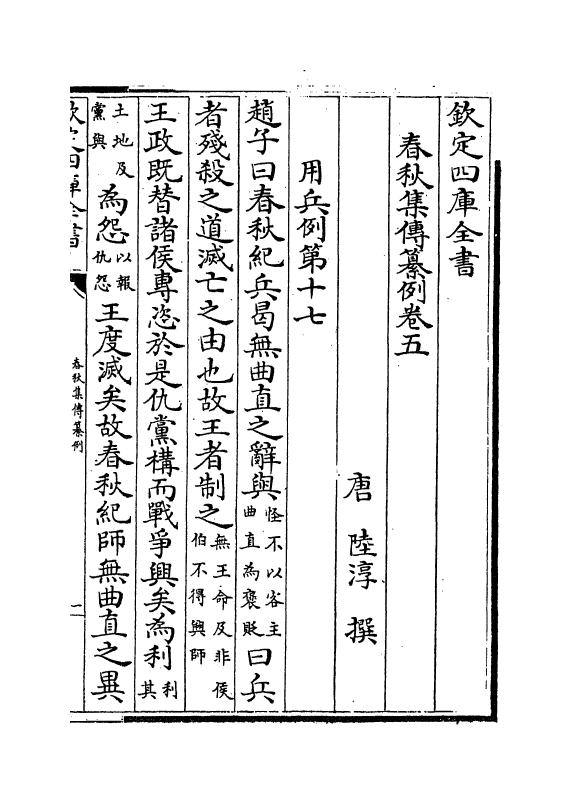 欽定四庫全書
春秋集傳纂例卷五
唐 陸淳 撰
用兵例第十七
趙子曰春秋紀兵曷無曲直之辭與怪不以客主曲直為褒貶曰兵
者殘殺之道滅亡之由也故王者制之無王命及非侯伯不得興師
王政既替諸侯專恣於是仇黨構而戰爭興矣為利利其
土地及黨與為怨以報仇怨王度滅矣故春秋紀師無曲直之異
欽定四庫全書
春秋集傳纂例
一